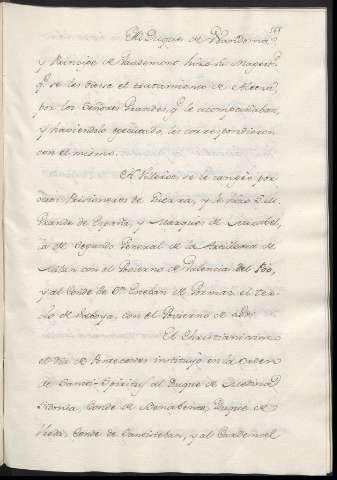 Al Duque de Vandoma
y Principe de Vaudemont hizo su Magestd
qe. se les diese el tratamiento de Alteza,
por los Señores Grandes, qe. le acompañaban,
y haviendolo executado, les correspondieron
con el mismo.
A Villeroe, se le cangeó por
otros Prisioneros de Guerra, y se hizo
Grande de España, y Marques de Mirabel,
a segundo General de la Artilleria de
Milan con el Govierno de Valencia del Pòo,
y al Conde de Sn. Esteban de Gormaz, el
de Saboya, con el Govierno de
El Christianisimo
el dia de Pentecostes instituyó en la Orden
de Sancti-Spiritus al Duque de Medina
Sidonia, Conde de Benabente, Duque de
Uzeda, Conde de Santisteban, y al Cardenal